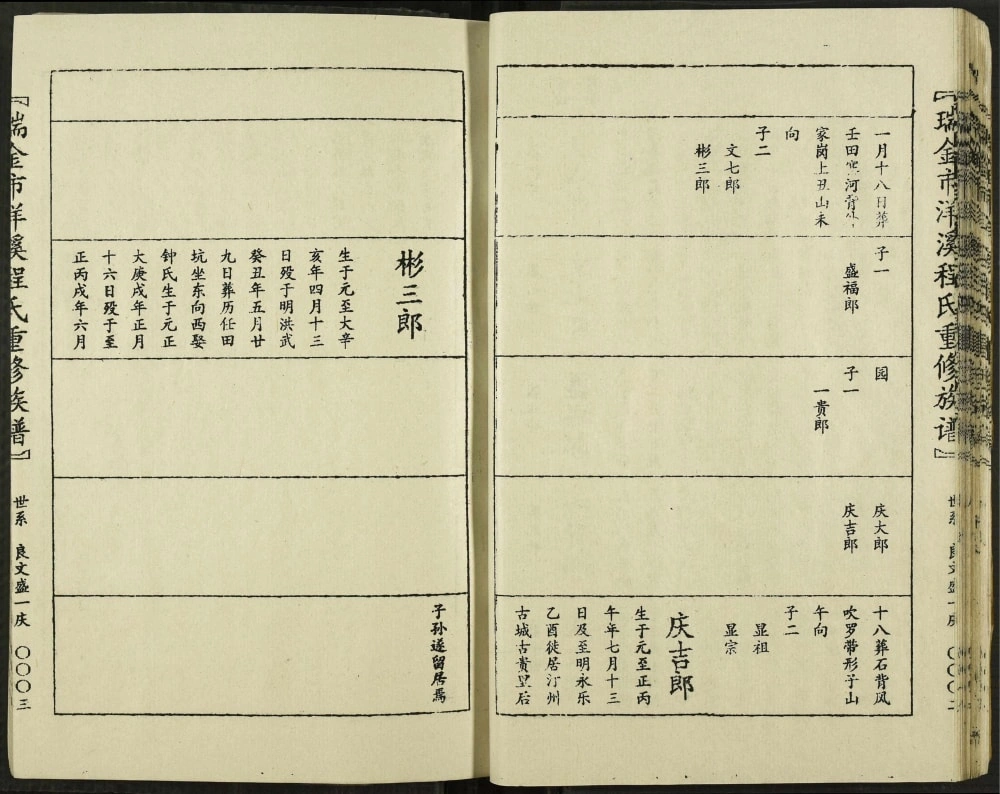 『瑞金市洋溪程氏重修族谱』
世系
一月十八日葬
家岗上丑山未
向
子二
文七郎
彬三郎
子一
盛福郎
园
子一
一贵郎
庆大郎
庆吉郎
十八葬石背风
吹罗带形子山
午向
子二
显祖
显宗
庆吉郎
生于元至正丙
午年七月十三
日及至明永乐
乙酉徙居汀州
古城古贵里后
彬三郎
生于元至大辛
亥年四月十三
日殁于明洪武
癸丑年五月廿
九日葬历任田
坑坐东向西娶
钟氏生于元正
大庚戌年正月
十六日殁于至
正丙戌年六月
子孙遂留居焉
瑞金市洋溪程氏重修族谱』
世系 良文盛一庆 〇〇〇三